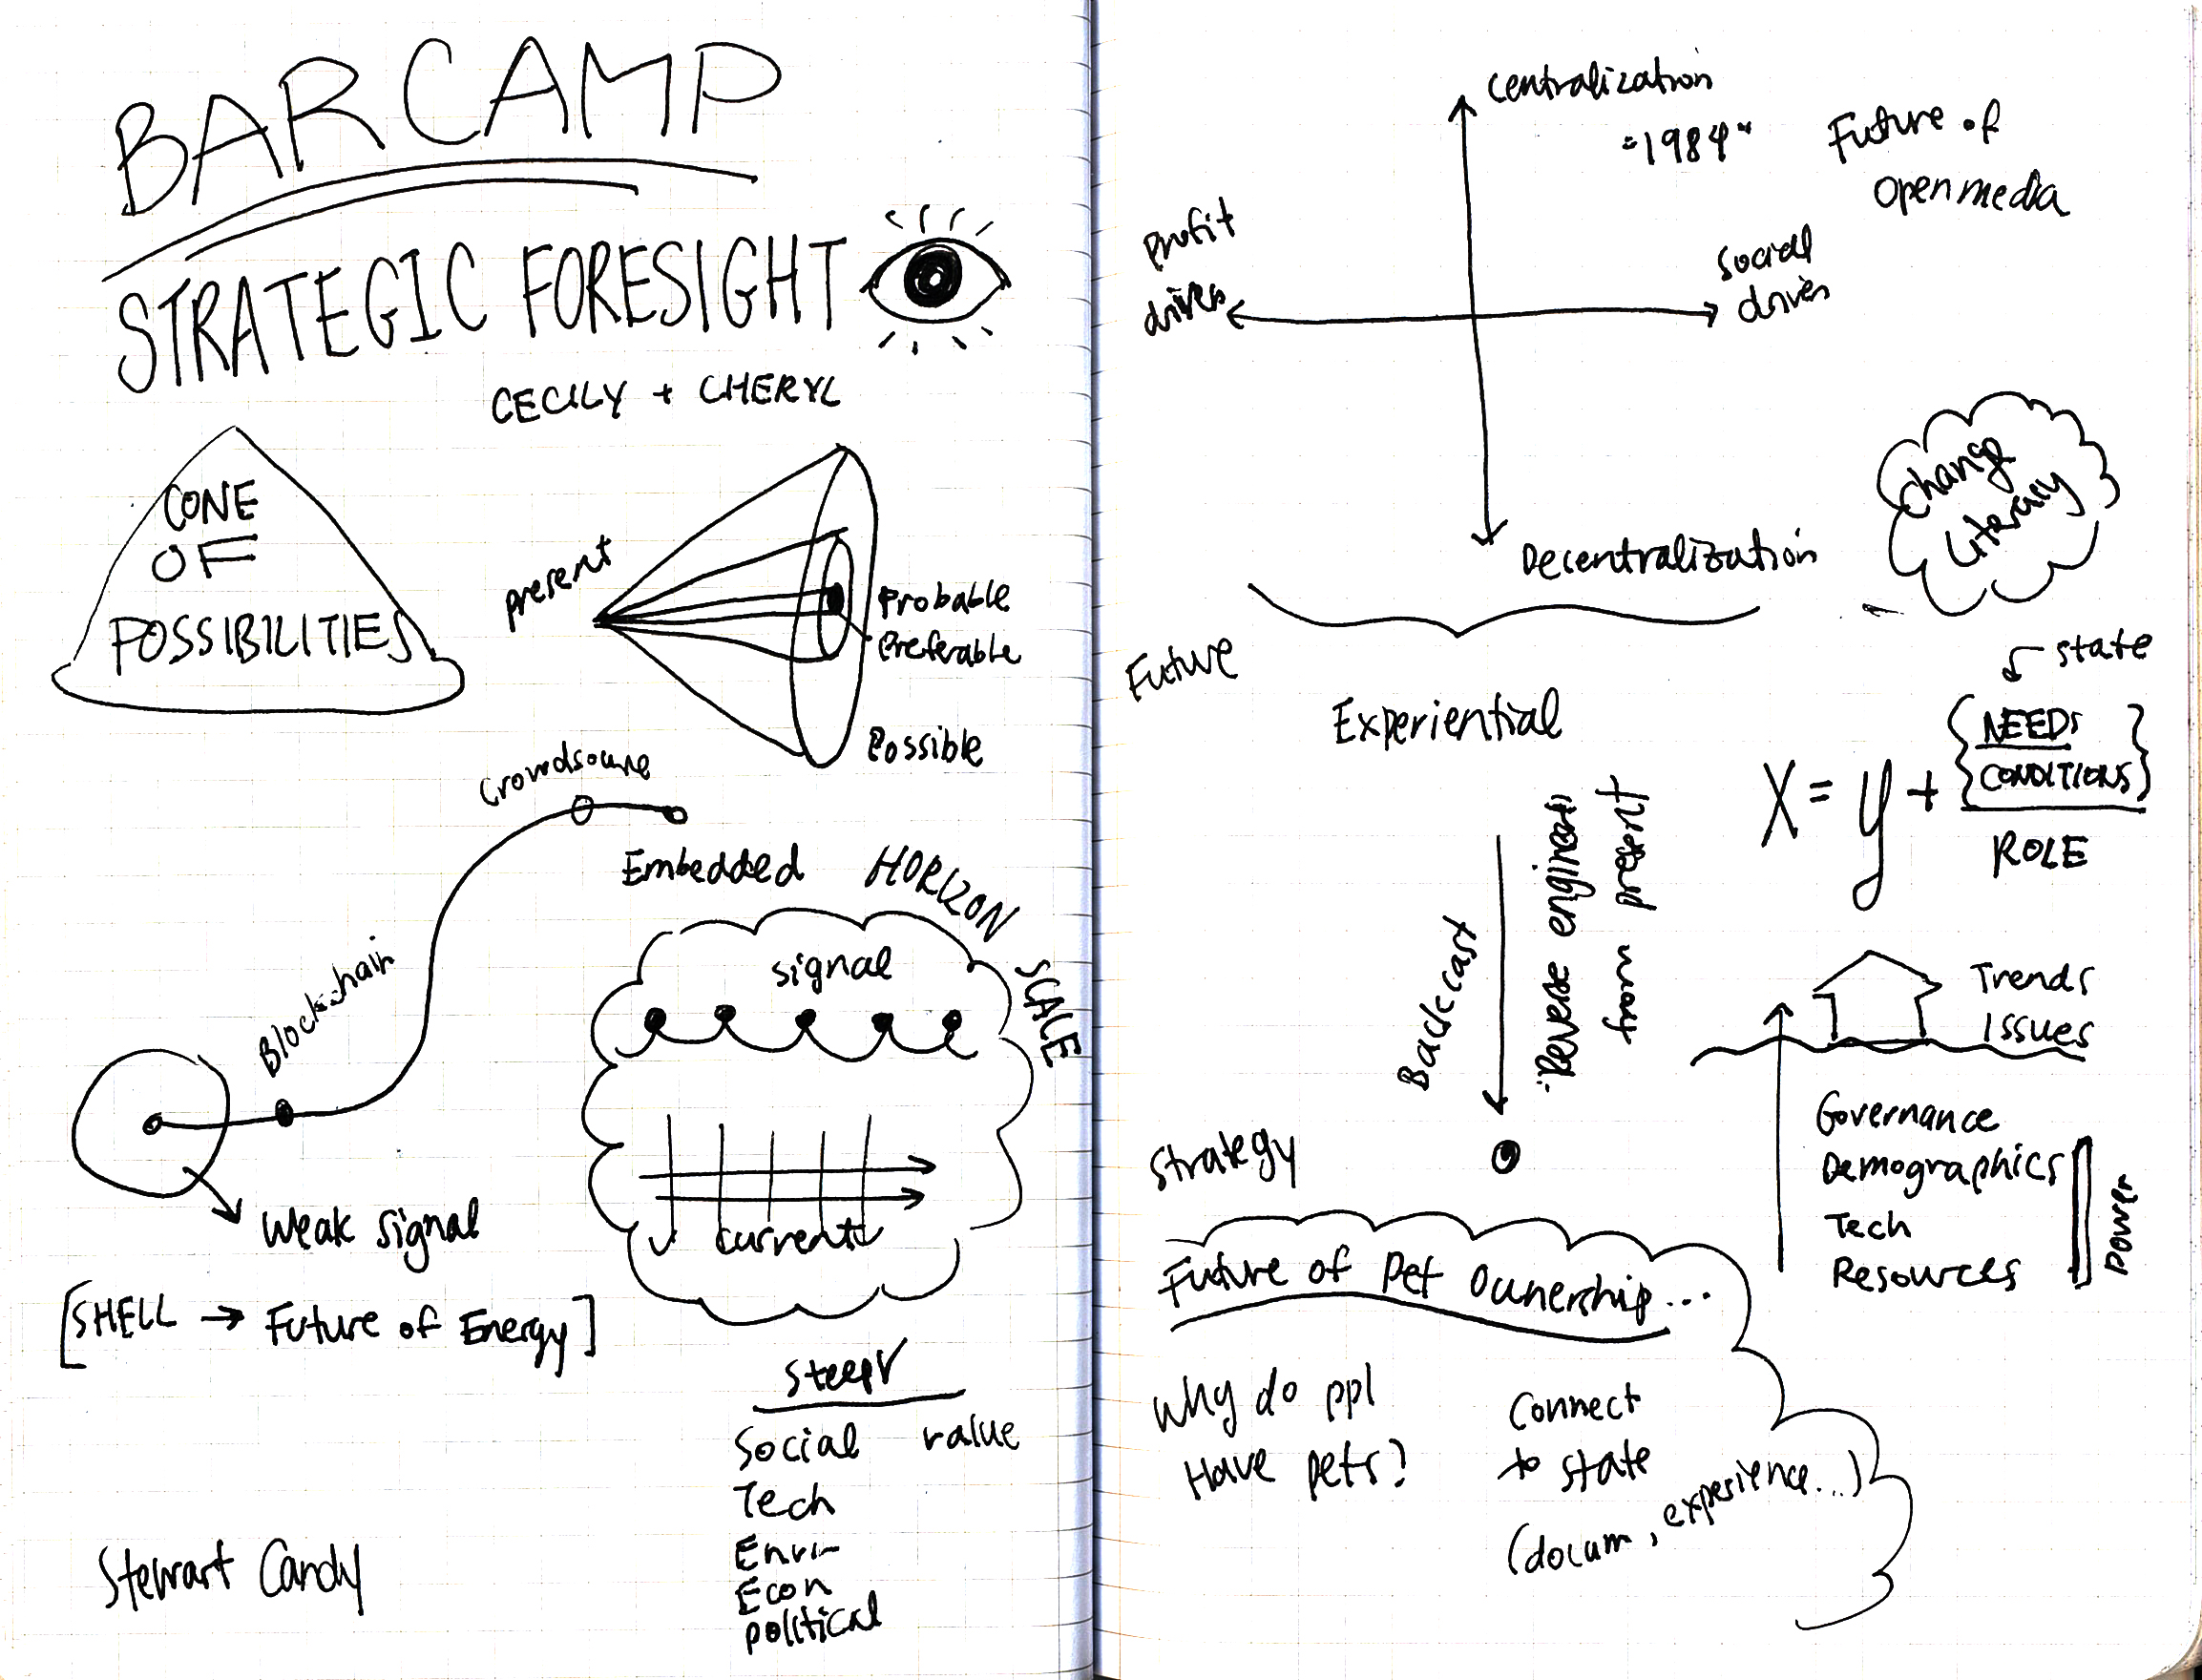 BARCAMP
STRATEGIC FORESIGHT
CECILY + CHERYL
CONE
OF
POSSIBILITIES
present
Probable
Preferable
Possible
Crowdsource
Embedded
Blockchain
Weak signal
HORIZON
SCALE
signal
current
[SHELL → Future of Energy]
STEEPV
Social value
Tech
Envi-
Econ
political
Stewart Candy
centralization
"1984"
Future of
Open media
Profit
driven
Social
driven
Decentralization
Change
Literacy
Future
Experiential
state
X = y + {NEEDS
CONDITIONS}
ROLE
Backcast
Reverse engineer
from present
Strategy
Trends
Issues
Governance
Demographics
Tech
Resources
Power
Future of Pet Ownership...
Why do ppl
Have pets?
Connect
to state
(docum, experience...)